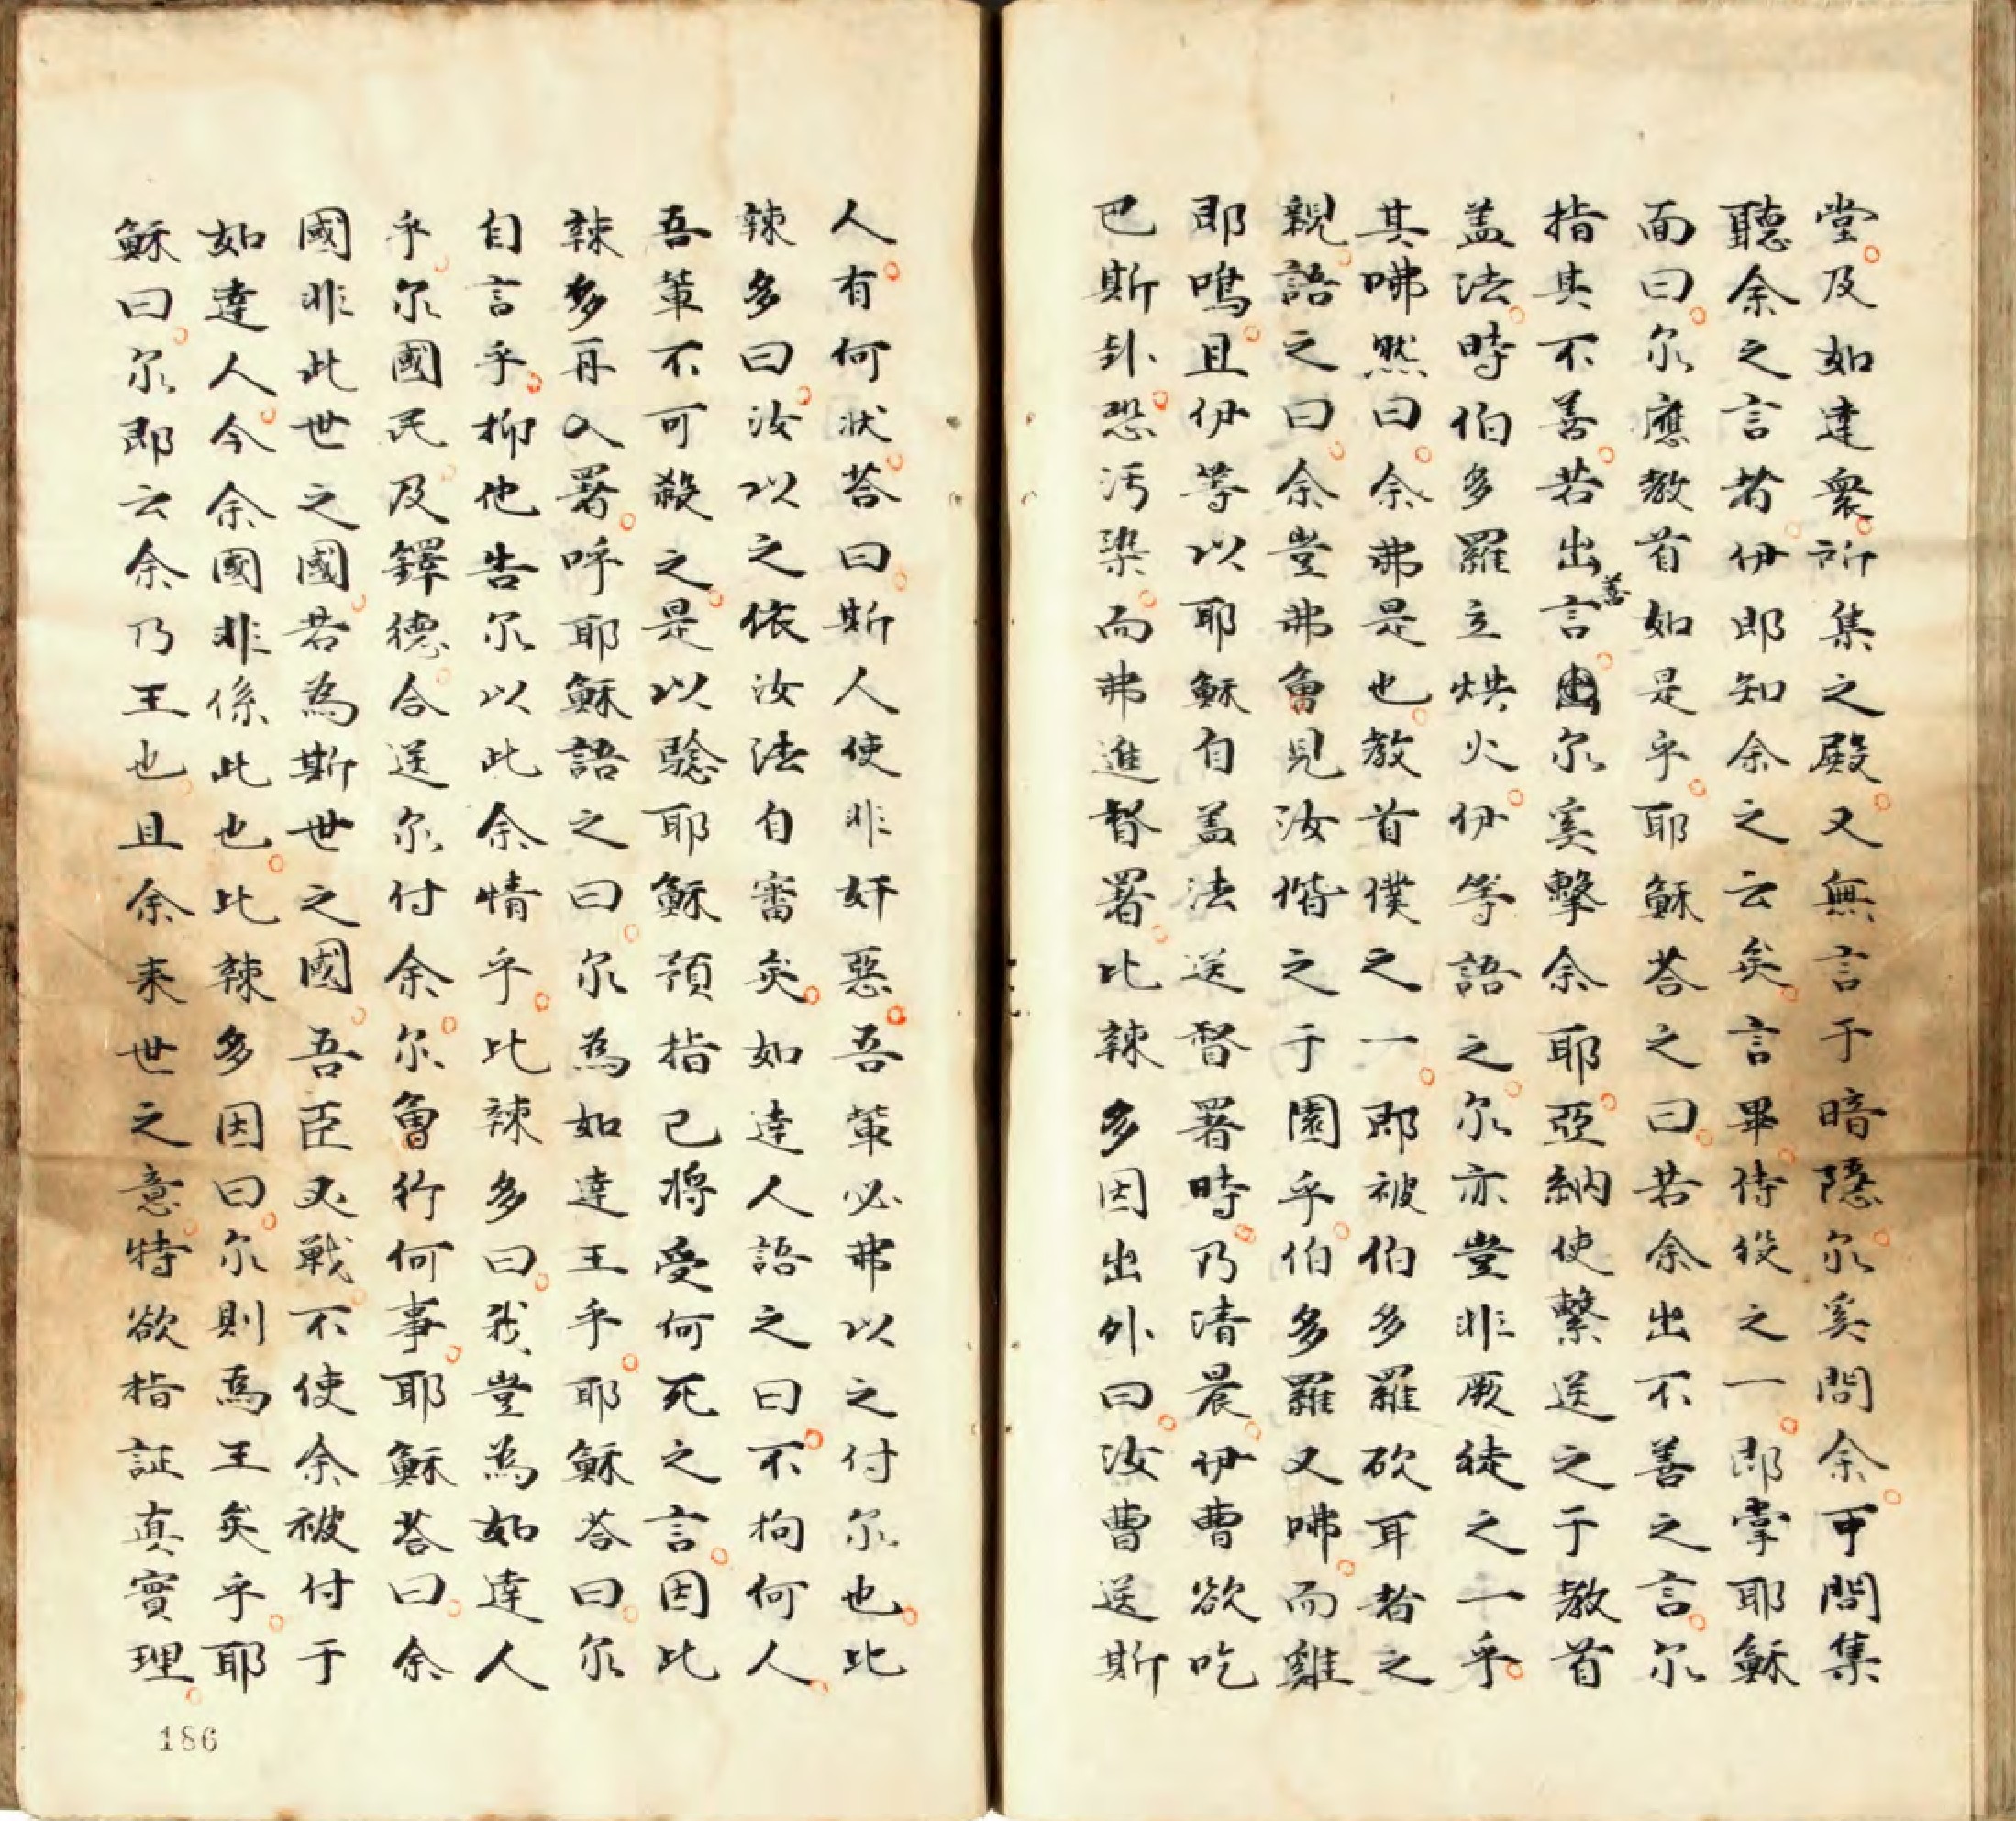 堂。及如達衆。所集之殿。又無言于暗隱。尔奚問余。可問集
聽余之言者。伊即知余之云矣。言畢。侍役之一。即掌耶穌
面曰。尔應教首如是乎。耶穌荅之曰。若余出不善之言。尔
指其不善。若出善言。尔奚擊余。耶亞納使繫送之于教首
盖法。時伯多羅立烘火。伊等語之。尔亦豈非厥徒之一乎。
其咈然曰。余弗是也。教首僕之一。即被伯多羅砍耳者之
親。語之曰。余豈弗曾見汝偕之于園乎。伯多羅又咈。而雞
即鳴。且伊等以耶穌自盖法送督署時。乃清晨。伊曹欲吃
巴斯卦。恐汚染。而弗進督署。比辣多因出外曰。汝曹送斯
人。有何狀。荅曰。斯人使非奸惡。吾輩必弗以之付尔也。比
辣多曰。汝以之依汝法自審矣。如達人語之曰。不拘何人。
吾輩不可殺之。是以驗耶穌預指己將受何死之言。因比
辣多再入署。呼耶穌語之曰。尔為如達王乎。耶穌荅曰。尔
自言乎。抑他告尔以此余情乎。比辣多曰。我豈為如達人
乎。尔國民。及鐸德。合送尔付余。尔曾行何事。耶穌荅曰。余
國非此世之國。若為斯世之國。吾臣必戰。不使余被付于
如達人。今余國非係此也。比辣多因曰。尔則為王矣乎。耶
穌曰。尔即云余乃王也。且余来世之意。特欲指証真實理。
186